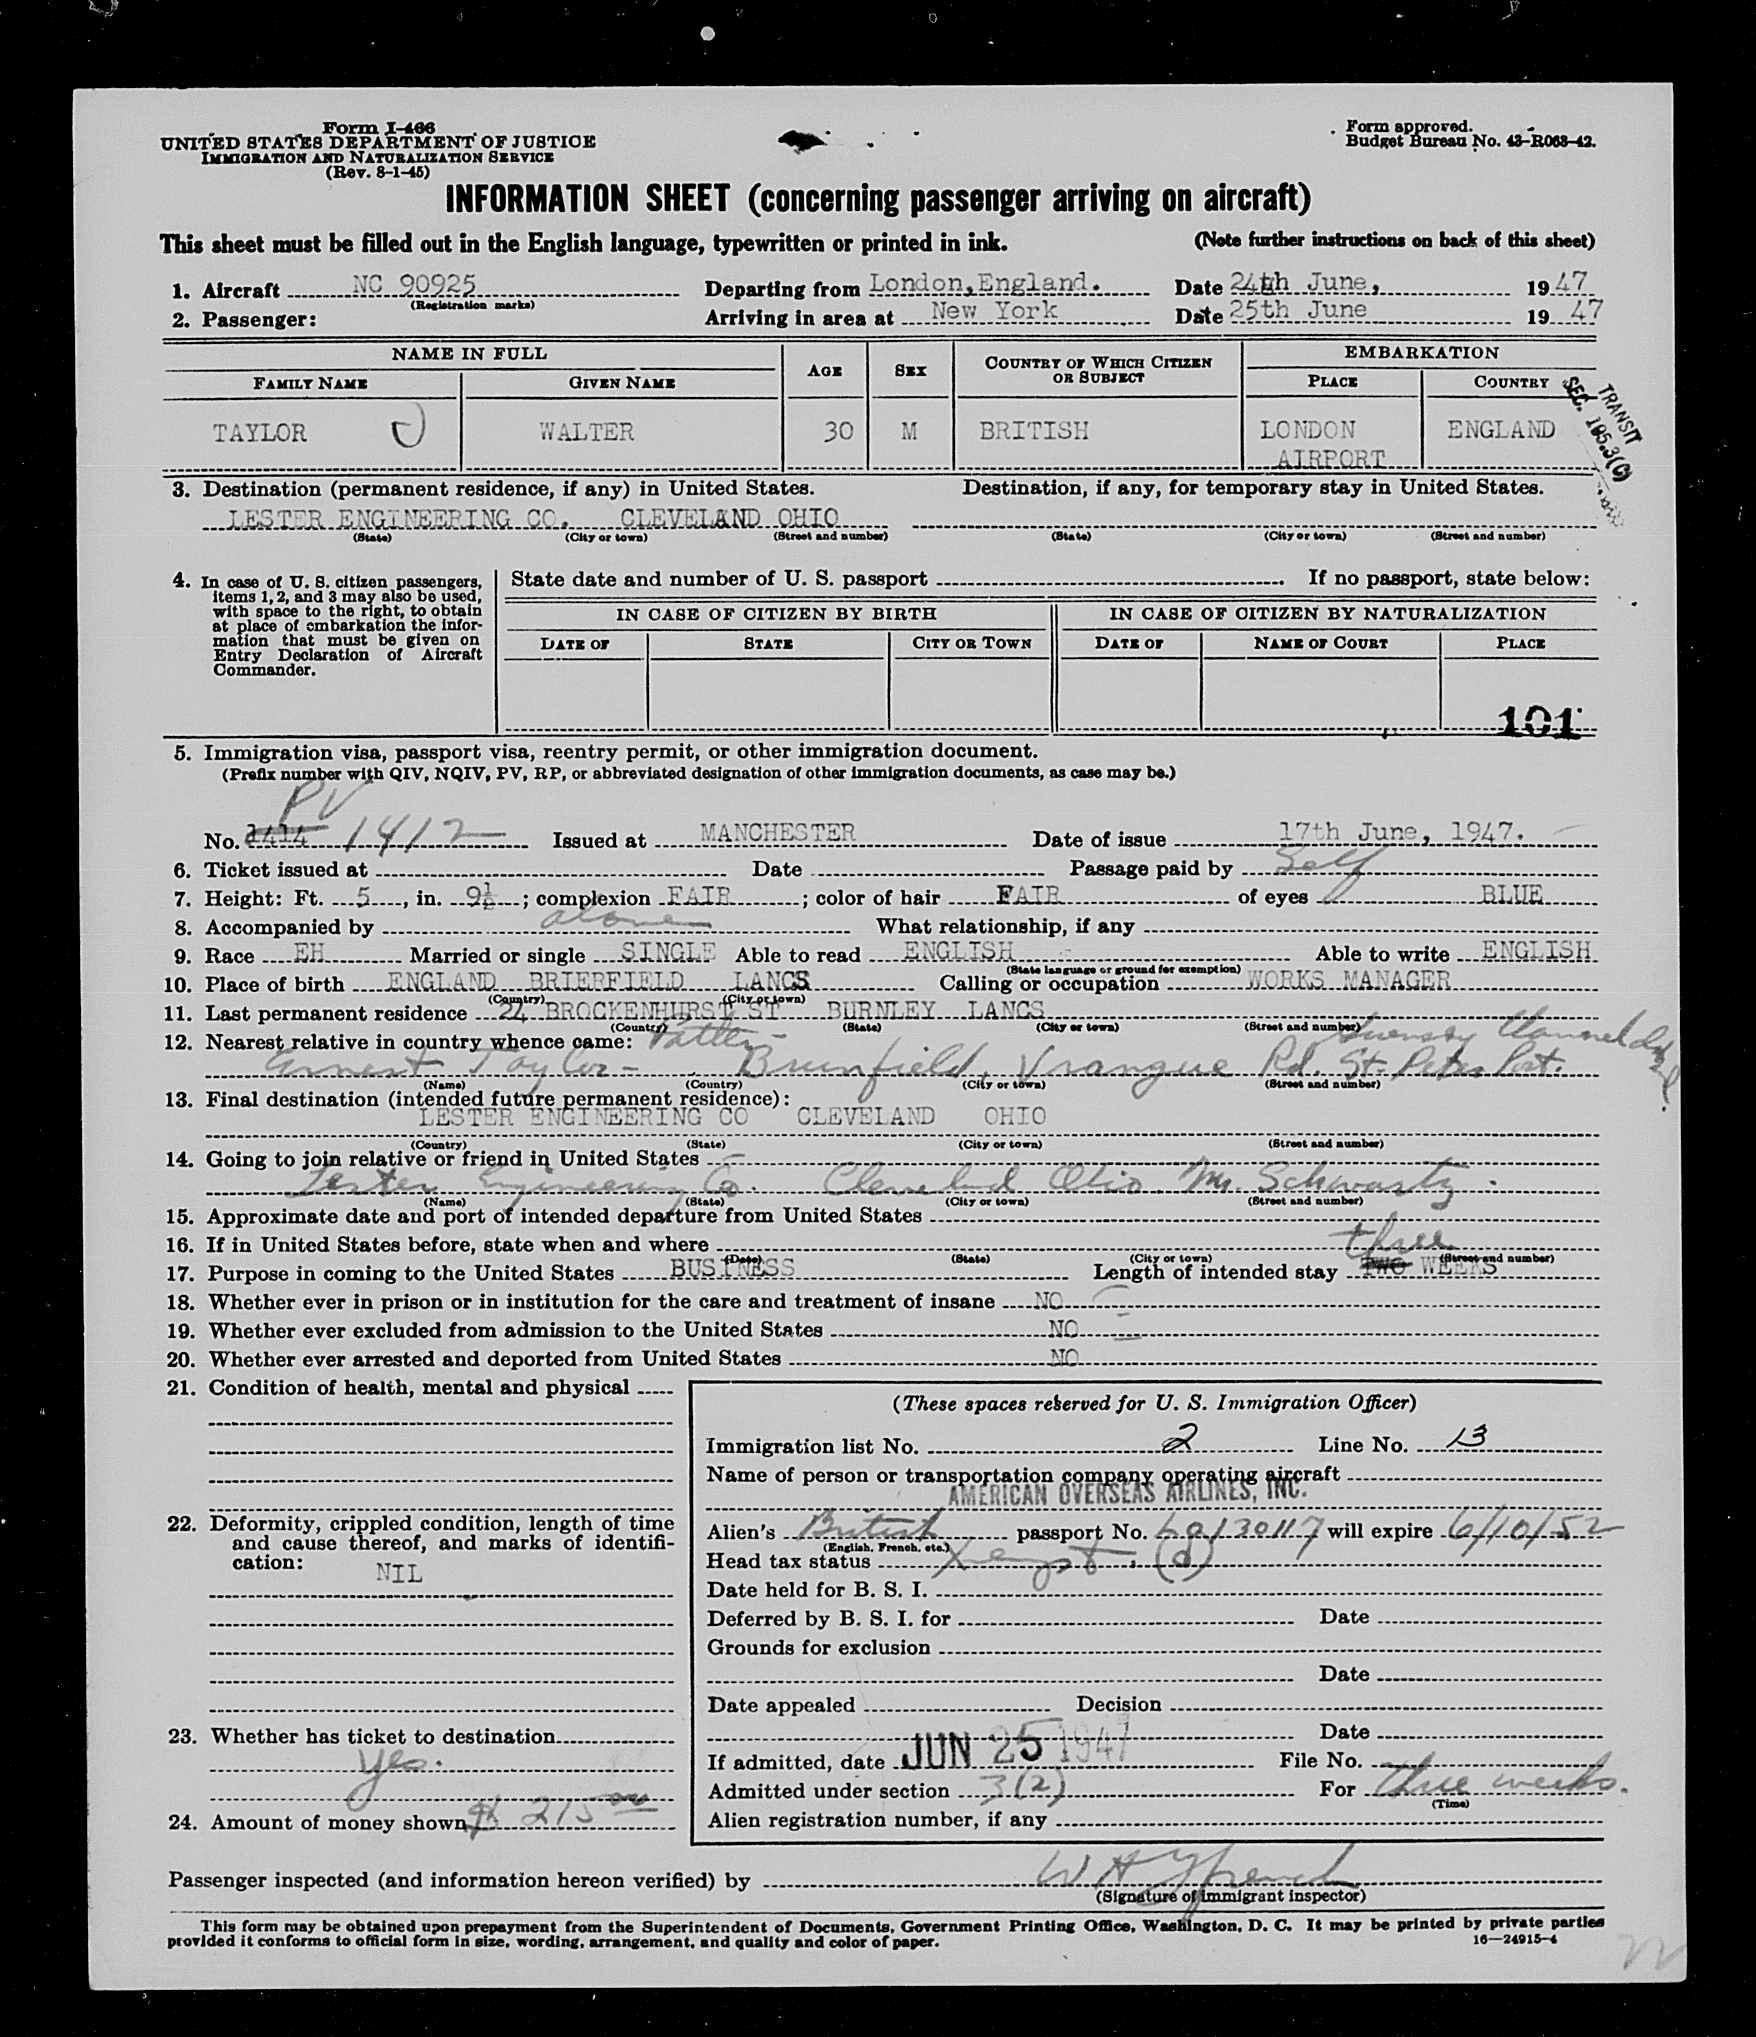 Form I-466
UNITED STATES DEPARTMENT OF JUSTICE
IMMIGRATION AND NATURALIZATION SERVICE
(Rev. 8-1-45)
Form approved.
Budget Bureau No. 43-R063-42.
INFORMATION SHEET (concerning passenger arriving on aircraft)
This sheet must be filled out in the English language, typewritten or printed in ink. (Note further instructions on back of this sheet)
1. Aircraft NC 90925 Departing from London, England. Date 24th June, 1947
(Registration marks)
2. Passenger: Arriving in area at New York Date 25th June 1947
NAME IN FULL AGE SEX COUNTRY OF WHICH CITIZEN OR SUBJECT EMBARKATION
FAMILY NAME GIVEN NAME PLACE COUNTRY
TAYLOR WALTER 30 M BRITISH LONDON AIRPORT ENGLAND
TRANSIT
SEC. 195.3(C)
3. Destination (permanent residence, if any) in United States. Destination, if any, for temporary stay in United States.
LESTER ENGINEERING CO. CLEVELAND OHIO
(State) (City or town) (Street and number) (State) (City or town) (Street and number)
4. In case of U. S. citizen passengers, items 1, 2, and 3 may also be used, with space to the right, to obtain at place of embarkation the information that must be given on Entry Declaration of Aircraft Commander.
State date and number of U. S. passport If no passport, state below:
IN CASE OF CITIZEN BY BIRTH IN CASE OF CITIZEN BY NATURALIZATION
DATE OF STATE CITY OR TOWN DATE OF NAME OF COURT PLACE
101
5. Immigration visa, passport visa, reentry permit, or other immigration document.
(Prefix number with QIV, NQIV, PV, RP, or abbreviated designation of other immigration documents, as case may be.)
PV
No. 1414 1412 Issued at MANCHESTER Date of issue 17th June, 1947.
6. Ticket issued at Date Passage paid by Self
7. Height: Ft. 5, in. 9½; complexion FAIR; color of hair FAIR of eyes BLUE
8. Accompanied by alone What relationship, if any
9. Race EH Married or single SINGLE Able to read ENGLISH Able to write ENGLISH
(State language or ground for exemption)
10. Place of birth ENGLAND BRIERFIELD LANCS Calling or occupation WORKS MANAGER
(Country) (City or town)
11. Last permanent residence 24 BROCKENHURST ST BURNLEY LANCS
(Country) (State) (City or town) (Street and number)
12. Nearest relative in country whence came: Father - Guernsey Channel
Ernest Taylor - Brunfield, Vrangue Rd. St. Peter Port.
(Name) (Country) (City or town) (Street and number)
13. Final destination (intended future permanent residence):
LESTER ENGINEERING CO CLEVELAND OHIO
(Country) (State) (City or town) (Street and number)
14. Going to join relative or friend in United States
Lester Engineering Co. Cleveland Ohio. Mr. Schwartz.
(Name) (State) (City or town) (Street and number)
15. Approximate date and port of intended departure from United States
16. If in United States before, state when and where
(Date) (State) (City or town) (Street and number)
three
17. Purpose in coming to the United States BUSINESS Length of intended stay TWO WEEKS
18. Whether ever in prison or in institution for the care and treatment of insane NO
19. Whether ever excluded from admission to the United States NO
20. Whether ever arrested and deported from United States NO
21. Condition of health, mental and physical
22. Deformity, crippled condition, length of time and cause thereof, and marks of identification:
NIL
23. Whether has ticket to destination
Yes.
24. Amount of money shown $ 215.00
(These spaces reserved for U. S. Immigration Officer)
Immigration list No. 2 Line No. 13
Name of person or transportation company operating aircraft
AMERICAN OVERSEAS AIRLINES, INC.
Alien's British passport No. will expire 6/10/52
(English, French, etc.)
Head tax status (d)
Date held for B. S. I.
Deferred by B. S. I. for Date
Grounds for exclusion
Date
Date appealed Decision
Date
If admitted, date JUN 25 1947 File No.
Admitted under section 3(2) For three weeks.
(Time)
Alien registration number, if any
Passenger inspected (and information hereon verified) by
(Signature of immigrant inspector)
This form may be obtained upon prepayment from the Superintendent of Documents, Government Printing Office, Washington, D. C. It may be printed by private parties
provided it conforms to official form in size, wording, arrangement, and quality and color of paper. 16—24915-4